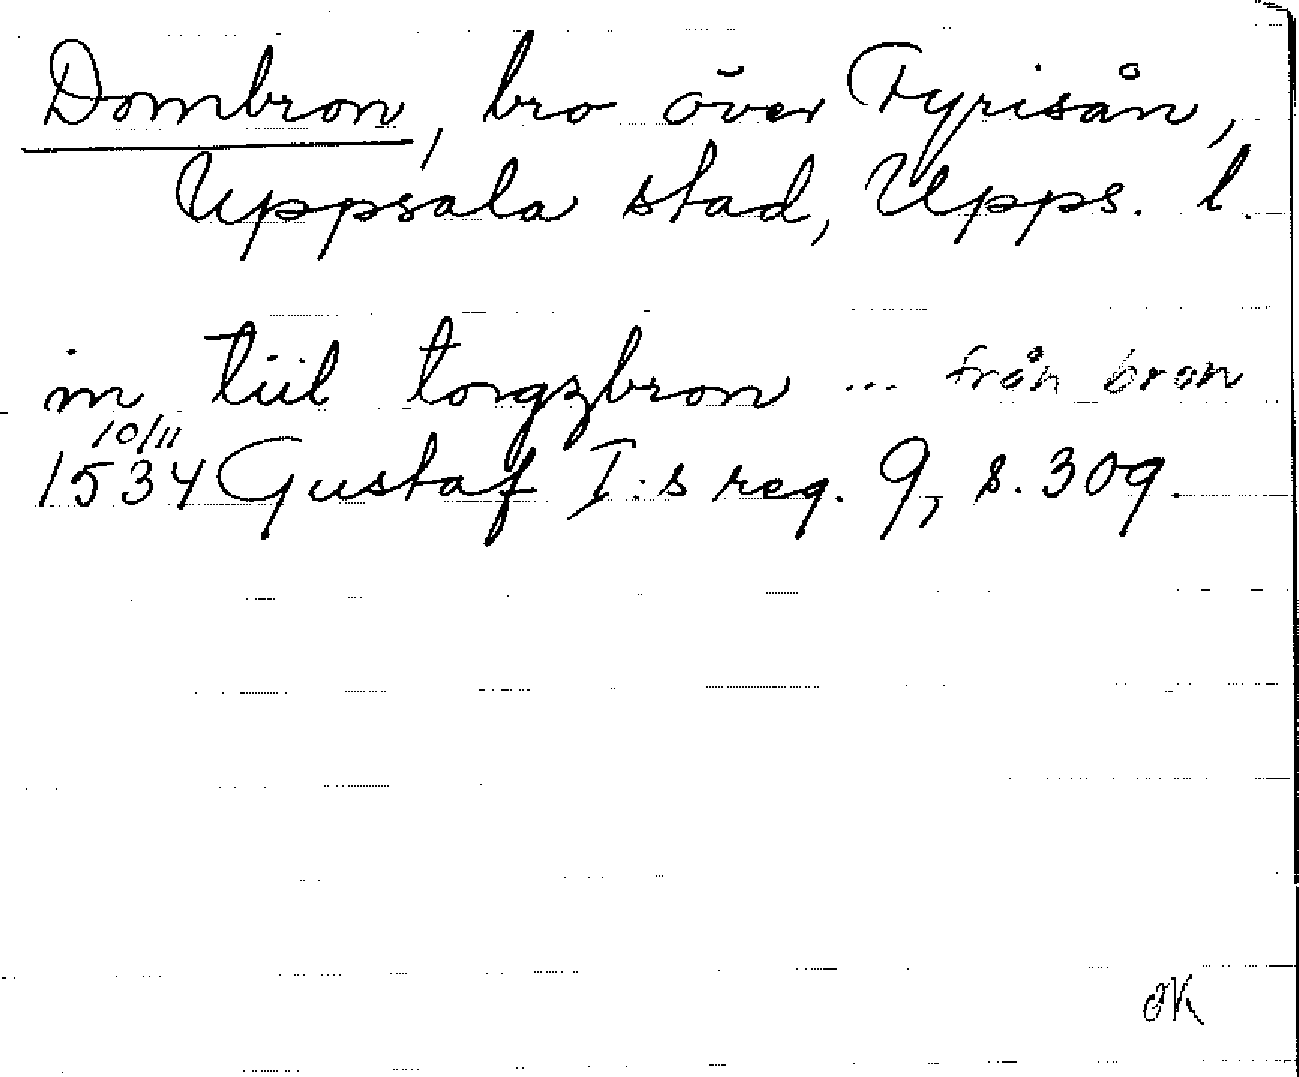 Dombron, bro över Fyrisån,
Uppsala stad, Upps. l.
in tiil torgzbron ... från bron
10/11
1534 Gustaf I:s reg. 9, s. 309.
OK